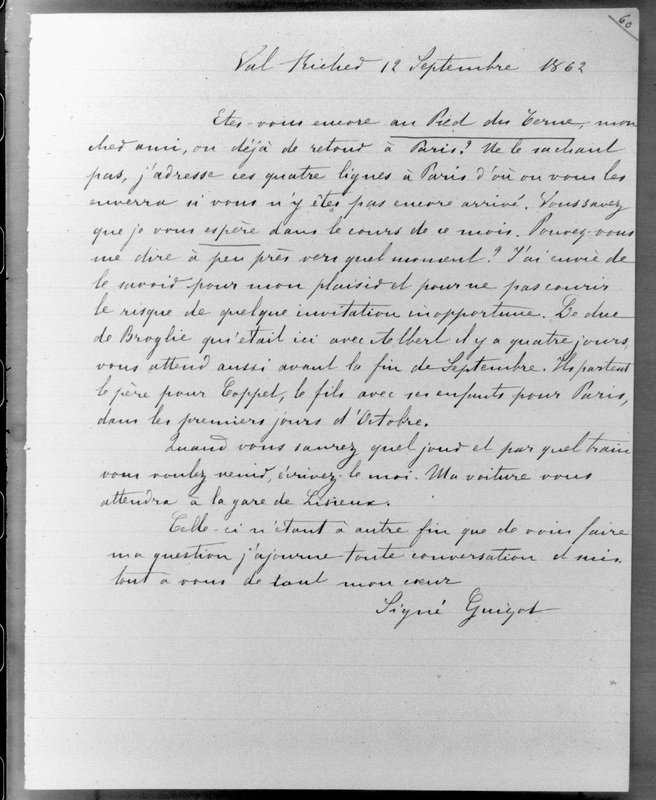 60
Val Richer 12 Septembre 1862
Etes-vous encore au Pied du Terne, mon
cher ami, ou déjà de retour à Paris? Ne le sachant
pas, j'adresse ces quatre lignes à Paris d'où on vous les
enverra si vous n'y êtes pas encore arrivé. Vous savez
que je vous espère dans le cours de ce mois. Pouvez-vous
me dire à peu près vers quel moment? J'ai envie de
le savoir pour mon plaisir et pour ne pas courir
le risque de quelque invitation inopportune. Le duc
de Broglie qui était ici avec Albert il y a quatre jours,
vous attend aussi avant la fin de Septembre. Ils partent
le père pour Coppet, le fils avec ses enfants pour Paris,
dans les premiers jours d'Octobre.
Quand vous saurez quel jour et par quel train
vous voulez venir, écrivez-le moi. Ma voiture vous
attendra à la gare de Lisieux.
Celle-ci n'étant à autre fin que de vous faire
ma question j'ajourne toute conversation et suis
tout à vous de tout mon cœur
Signé Guizot